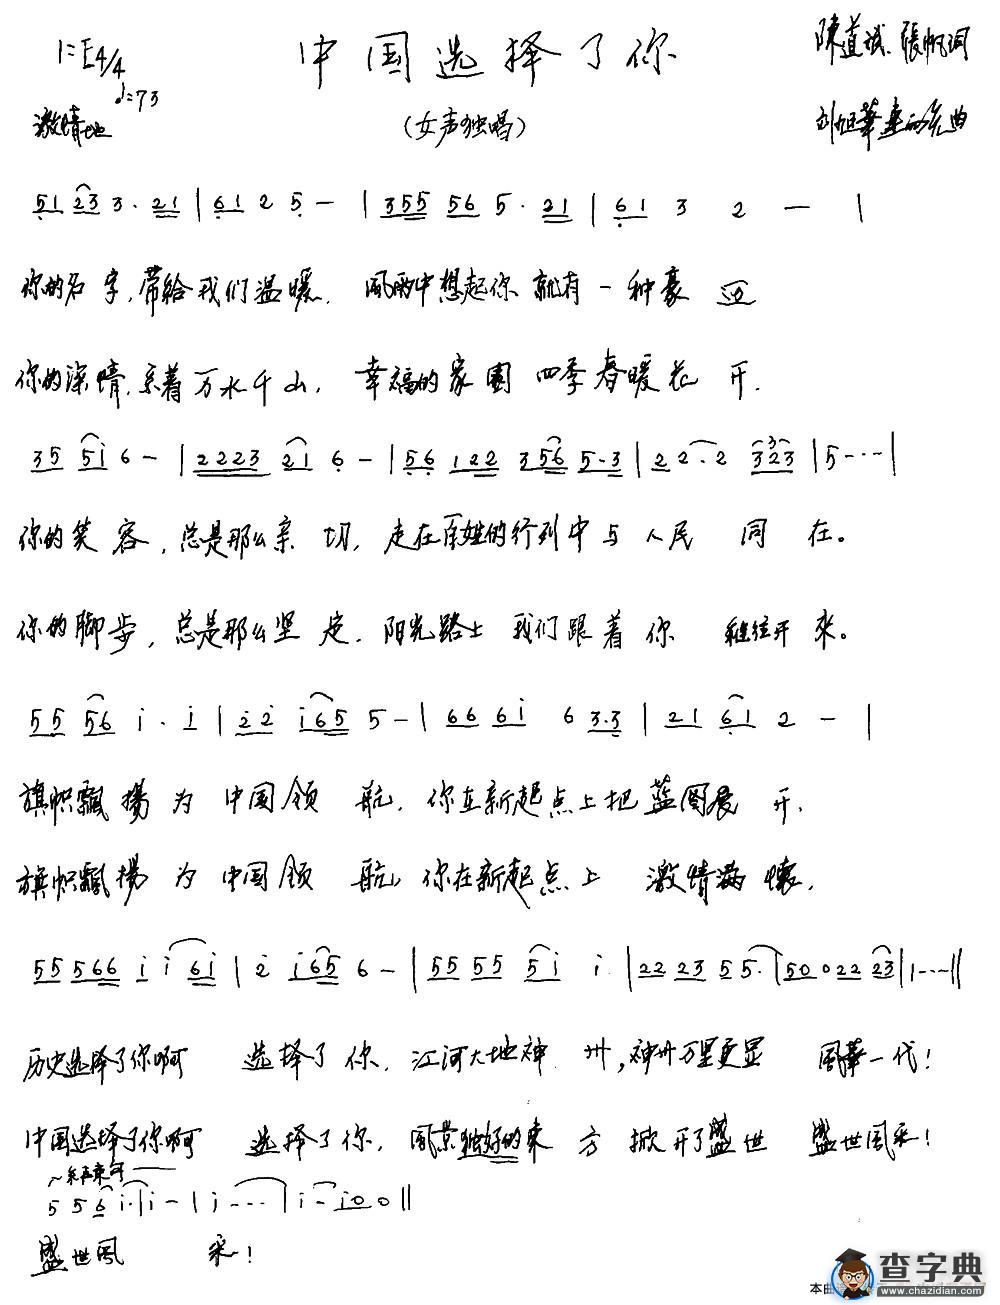 1=E4/4 中国选择了你 陳道斌、張帆词
♩=73
激情地 (女声独唱) 曲
51 23 3· 21 | 61 2 5 — | 355 56 5· 21 | 61 3 2 — |
你的名字,带给我们温暖, 風雨中想起你就有一种豪迈
你的深情,系着万水千山, 幸福的家園四季春暖花开.
35 5i 6 — | 2223 21 6 — | 56 122 356 5·3 | 2 2·2 323 | 5--- |
你的笑容,总是那么亲切, 走在百姓的行列中与人民同在。
你的脚步,总是那么坚定, 阳光路上我们跟着你继往开來。
55 56 i· i | 2̇2̇ i65 5 — | 66 6i 6 3·3 | 21 61 2 — |
旗帜飄揚为中国领航, 你在新起点上把蓝图展开,
旗帜飄揚为中国领航, 你在新起点上激情满懷,
55 566 i i 6i | 2̇ i65 6 — | 55 55 5i i· | 22 23 5 5· | 50 022 23 | 1--- ‖
历史选择了你啊 选择了你, 江河大地神州,神州万里更显風華一代!
中国选择了你啊 选择了你, 風景独好的東方掀开了盛世 盛世風采!
5 5 6 i· | i — | i --- | i — i 0 0 ‖
盛世風采!
查字典
www.chazidian.com